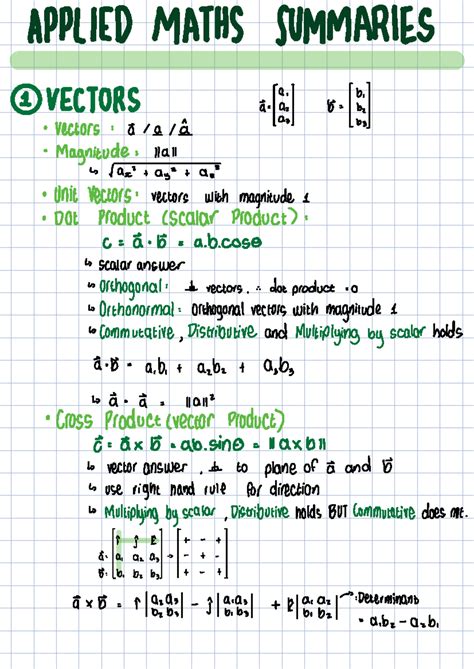 APPLIED MATHS SUMMARIES
① VECTORS
a⃗ = [a₁ a₂ a₃] b⃗ = [b₁ b₂ b₃]
• Vectors : a⃗ / a / â
• Magnitude : ||a||
↳ √(aₓ² + aᵧ² + a₂²)
• Unit Vectors : vectors with magnitude 1
• Dot Product (Scalar Product) :
c = a⃗ · b⃗ = a.b.cosθ
↳ scalar answer
↳ Orthogonal : ⊥ vectors, ∴ dot product = 0
↳ Orthonormal : Orthogonal vectors with magnitude 1
↳ Commutative, Distributive and Multiplying by scalar holds
a⃗ · b⃗ = a₁b₁ + a₂b₂ + a₃b₃
↳ a⃗ · a⃗ = ||a||²
• Cross Product (vector Product)
c⃗ = a⃗ x b⃗ = ab.sinθ = ||a x b||
↳ vector answer, ⊥ to plane of a⃗ and b⃗
↳ use right hand rule for direction
↳ Multiplying by scalar, Distributive holds BUT Commutative does not.
[î ĵ k̂] [+ - +]
a⃗: [a₁ a₂ a₃] → [- + -]
b⃗: [b₁ b₂ b₃] [+ - +]
a⃗ x b⃗ = î |a₂ a₃ b₂ b₃| - ĵ |a₁ a₃ b₁ b₃| + k̂ |a₁ a₂ b₁ b₂| → Determinant
= a₁b₂ - a₂b₁